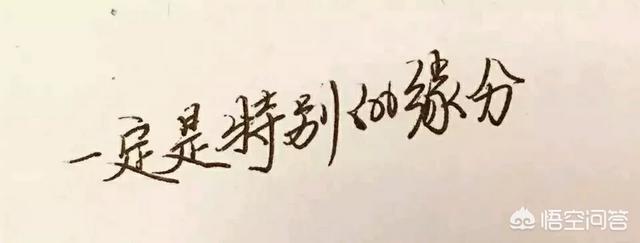 一定是特别的缘分
悟空问答